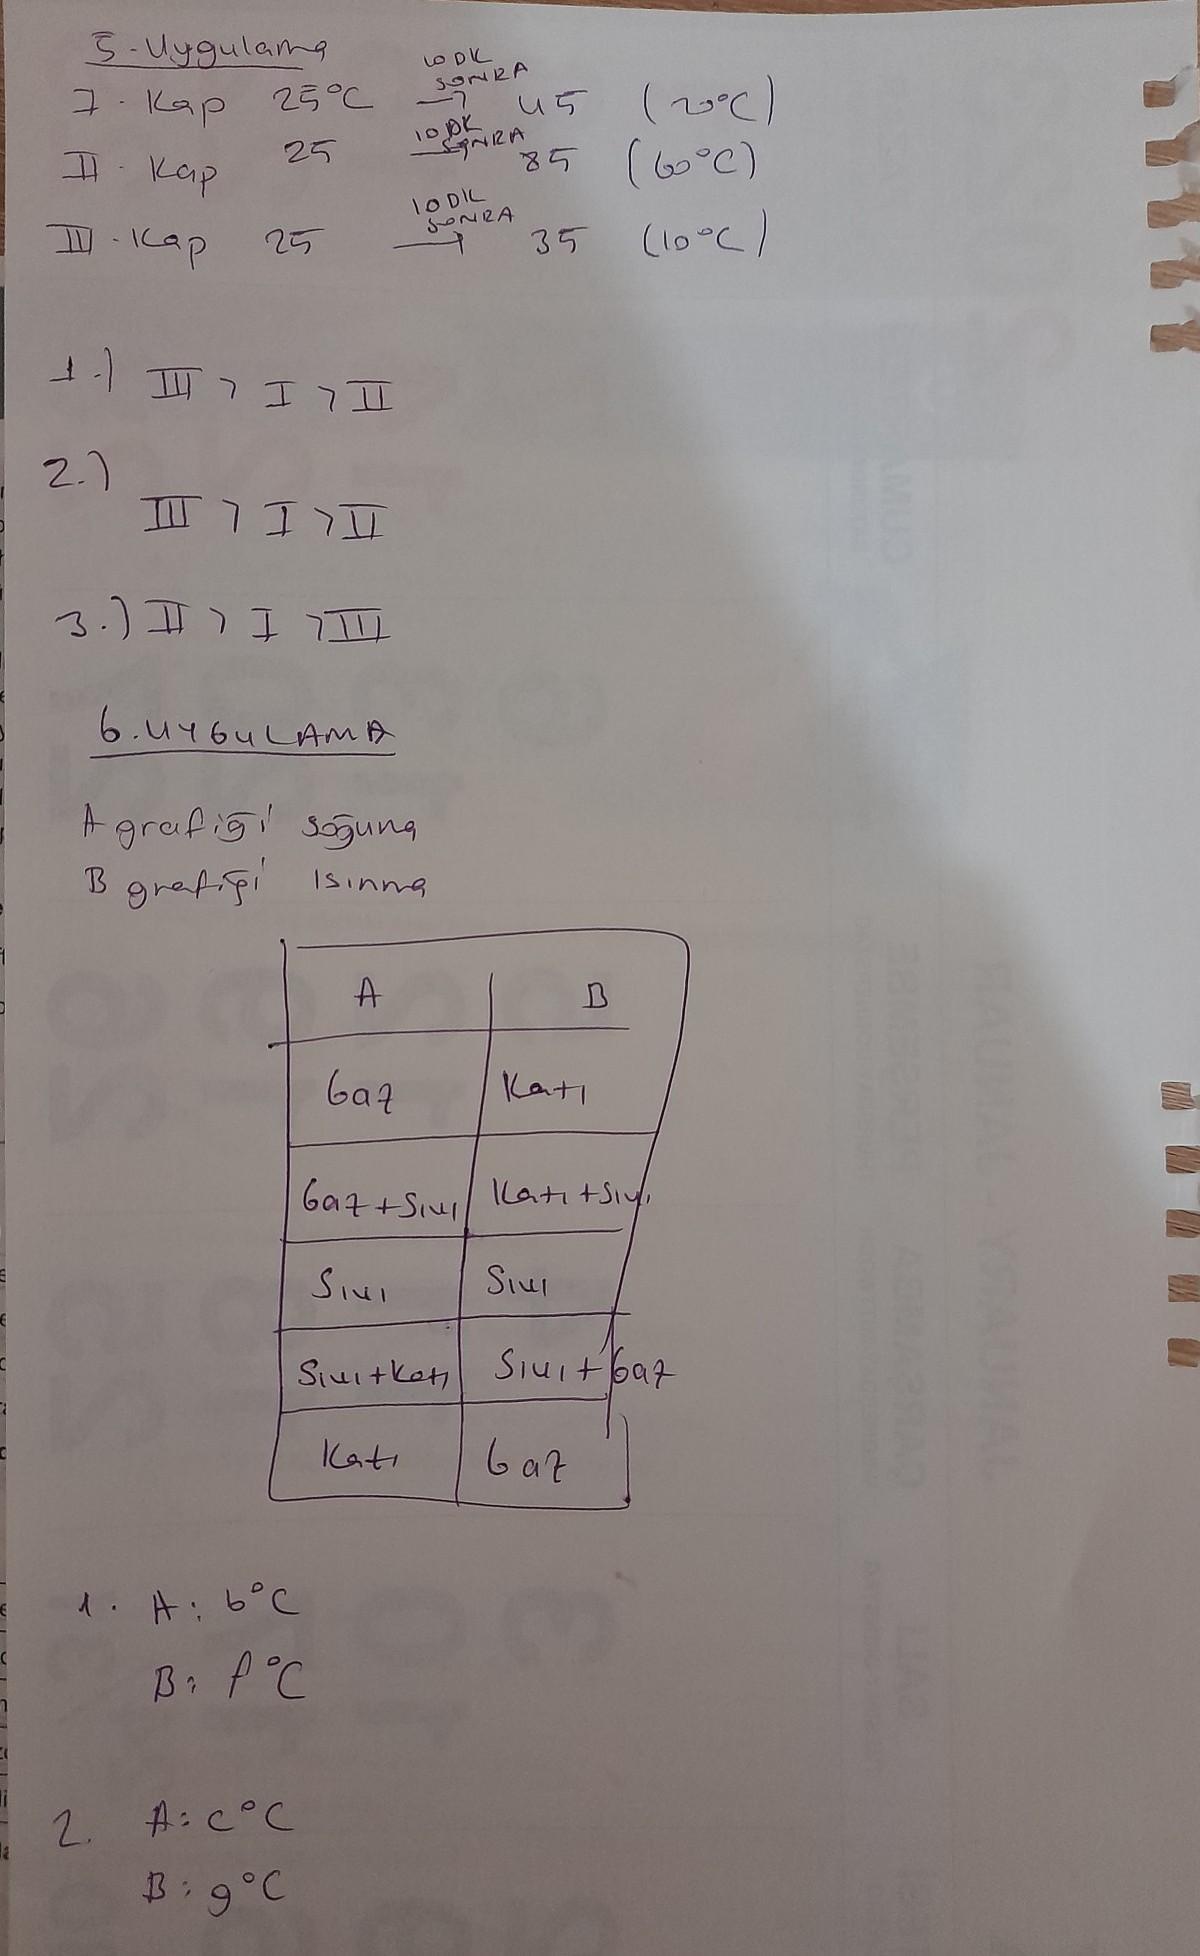 5-Uygulama
I. Kap 25°C 10 DK SONRA → 45 (20°C)
II. Kap 25 10 DK SONRA → 85 (60°C)
III. Kap 25 10 DK SONRA → 35 (10°C)
1.) III > I > II
2.)
III > I > II
3.) II > I > III
6. UYGULAMA
A grafiği soğuma
B grafiği Isınma
A B
Gaz Katı
Gaz+Sıvı Katı+Sıvı
Sıvı Sıvı
Sıvı+Katı Sıvı+Gaz
Katı Gaz
1. A: b°C
B: f°C
2. A: c°C
B: g°C